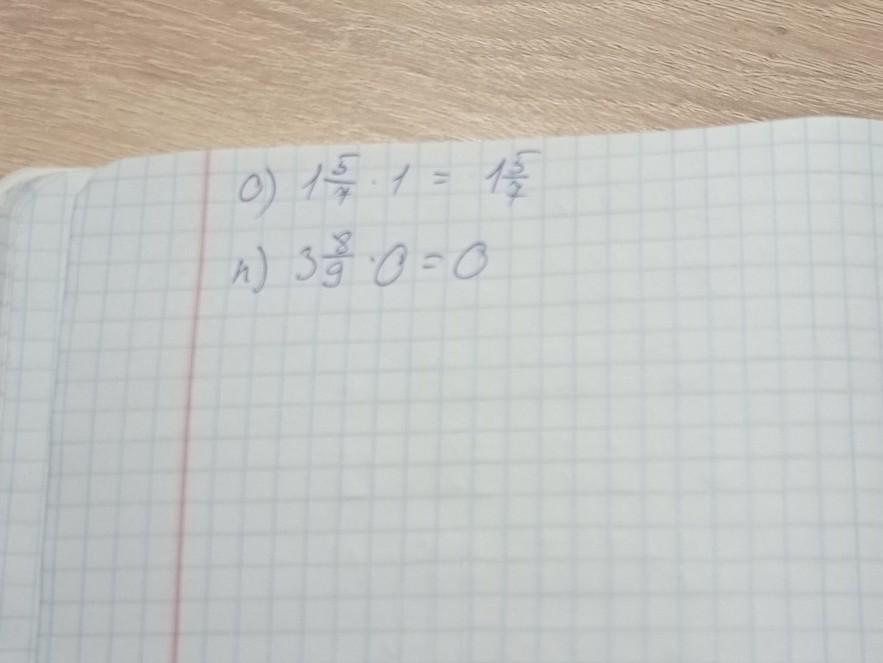 о) 1 5/7 · 1 = 1 5/7
п) 3 8/9 · 0 = 0